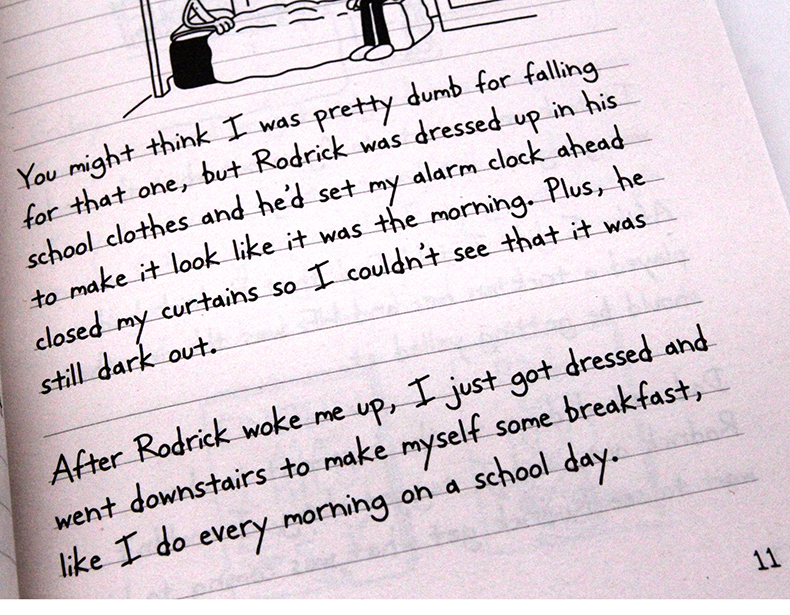 You might think I was pretty dumb for falling
for that one, but Rodrick was dressed up in his
school clothes and he'd set my alarm clock ahead
to make it look like it was the morning. Plus, he
closed my curtains so I couldn't see that it was
still dark out.
After Rodrick woke me up, I just got dressed and
went downstairs to make myself some breakfast,
like I do every morning on a school day.
11